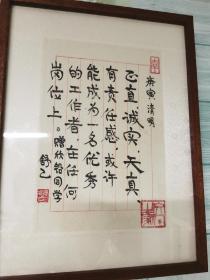 庚寅，清明
正直、诚实、天真、
有责任感，或许
能成为一名优秀
的工作者，在任何
岗位上。赠欣同学
舒乙